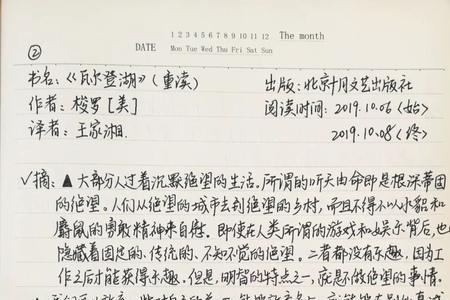 1 2 3 4 5 6 7 8 9 10 11 12 The month
DATE Mon Tue Wed Thu Fri Sat Sun
②
书名：《瓦尔登湖》（重读） 出版：北京十月文艺出版社
作者：梭罗［美］ 阅读时间：2019.10.06（始）
译者：王家湘. 2019.10.08（终）
✓摘：▲大部分人过着沉默绝望的生活。所谓的听天由命即是根深蒂固
的绝望。人们从绝望的城市去到绝望的乡村，而且不得不以水貂和
麝鼠的勇敢精神来自慰。即使在人类所谓的游戏和娱乐背后，也
隐藏着固定的、传统的、不知不觉的绝望。二者都没有乐趣，因为工
作之后才能获得乐趣。但是，明智的特点之一，就是不做绝望的事情。